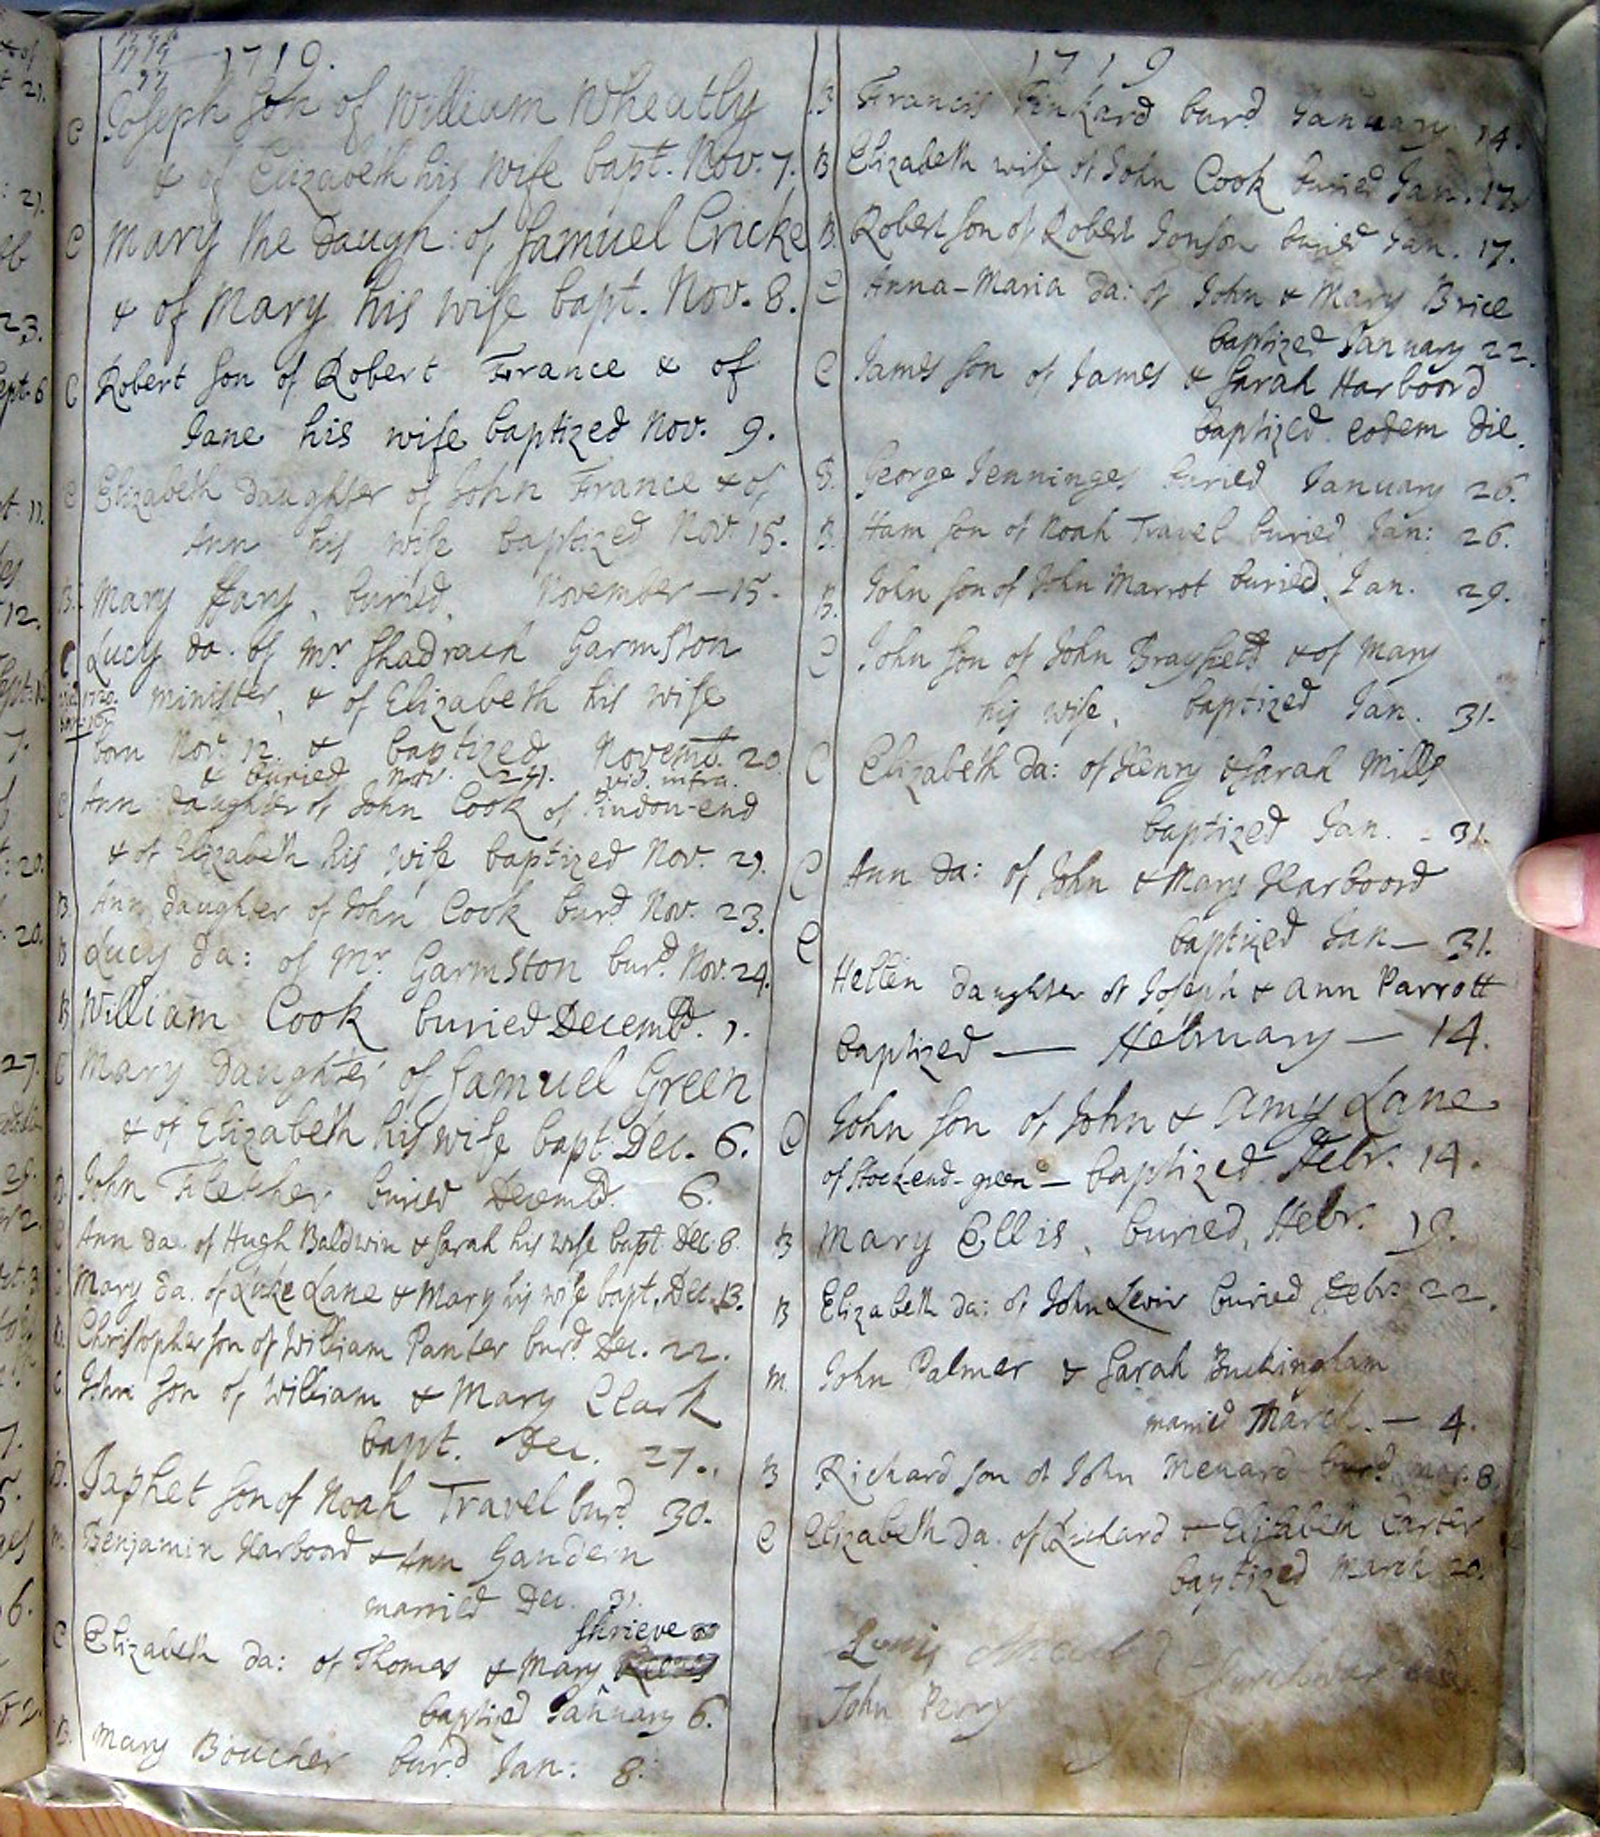 1719.
C Joseph Son of William Wheatly
& of Elizabeth his Wife bapt. Nov. 7.
C Mary the Daugh: of Samuel Cricke
& of Mary his wife bapt. Nov. 8.
C Robert Son of Robert France & of
Jane his wife baptized Nov. 9.
C Elizabeth daughter of John France & of
Ann his wife baptized Nov 15.
B. Mary buried, November — 15.
C Lucy da. of Mr Shadrach Garmston
minister, & of Elizabeth his wife
born Nov. 12 & baptized Novemb. 20
& buried Nov. 24. vid. infra.
C Ann daughter of John Cook of Pindon-end
& of Elizabeth his wife baptized Nov. 21.
B. Ann daughter of John Cook burd. Nov. 23.
B Lucy da: of Mr Garmston burd. Nov. 24.
B William Cook buried Decembr. 1.
C Mary Daughter of Samuel Green
& of Elizabeth his wife bapt Dec. 6.
B. John Fletcher buried Decembr. 6.
C Ann da. of Hugh Baldwin & Sarah his wife bapt. Dec. 8.
C Mary da. of Luke Lane & Mary his wife bapt. Dec. 13.
B. Christopher son of William Panter burd. Dec. 22.
C John Son of William & Mary Clark
bapt. Dec. 27.
B. Japhet Son of Noah Travel burd. 30.
m. Benjamin Harboord & Ann Gaudern
married Dec. 31.
Shrieve
C Elizabeth da: of Thomas & Mary
baptized January 6.
B. Mary Boucher burd. Jan: 8:
1719
B Francis Pinkard burd. January 14.
B Elizabeth wife of John Cook buried Jan. 17.
B. Robert son of Robert Jonson buried Jan. 17.
C Anna-Maria da: of John & Mary Brice
baptized January 22.
C James son of James & Sarah Harboord
baptized eodem die.
B. George Jenninges buried January 26.
B. Ham son of Noah Travel buried Jan: 26.
B. John son of John Marrot buried, Jan. 29.
C John son of John & of Mary
his wife, baptized Jan. 31.
C Elizabeth da: of Henry & Sarah Mills
baptized Jan. - 31.
C Ann da: of John & Mary Harboord
baptized Jan — 31.
C Hellen daughter of Joseph & Ann Parrott
baptized — ffebruary — 14.
C John son of John & Amy Lane
of Stock-end-green — baptized ffebr. 14.
B Mary Ellis, buried, ffebr. 19.
B Elizabeth da: of John buried febr. 22.
m. John Palmer & Sarah Buckingham
married March. — 4.
B Richard son of John Menard burd. mar. 8
C Elizabeth da. of Richard & Elizabeth Carter
baptized March 20.
Lewis
John Perry